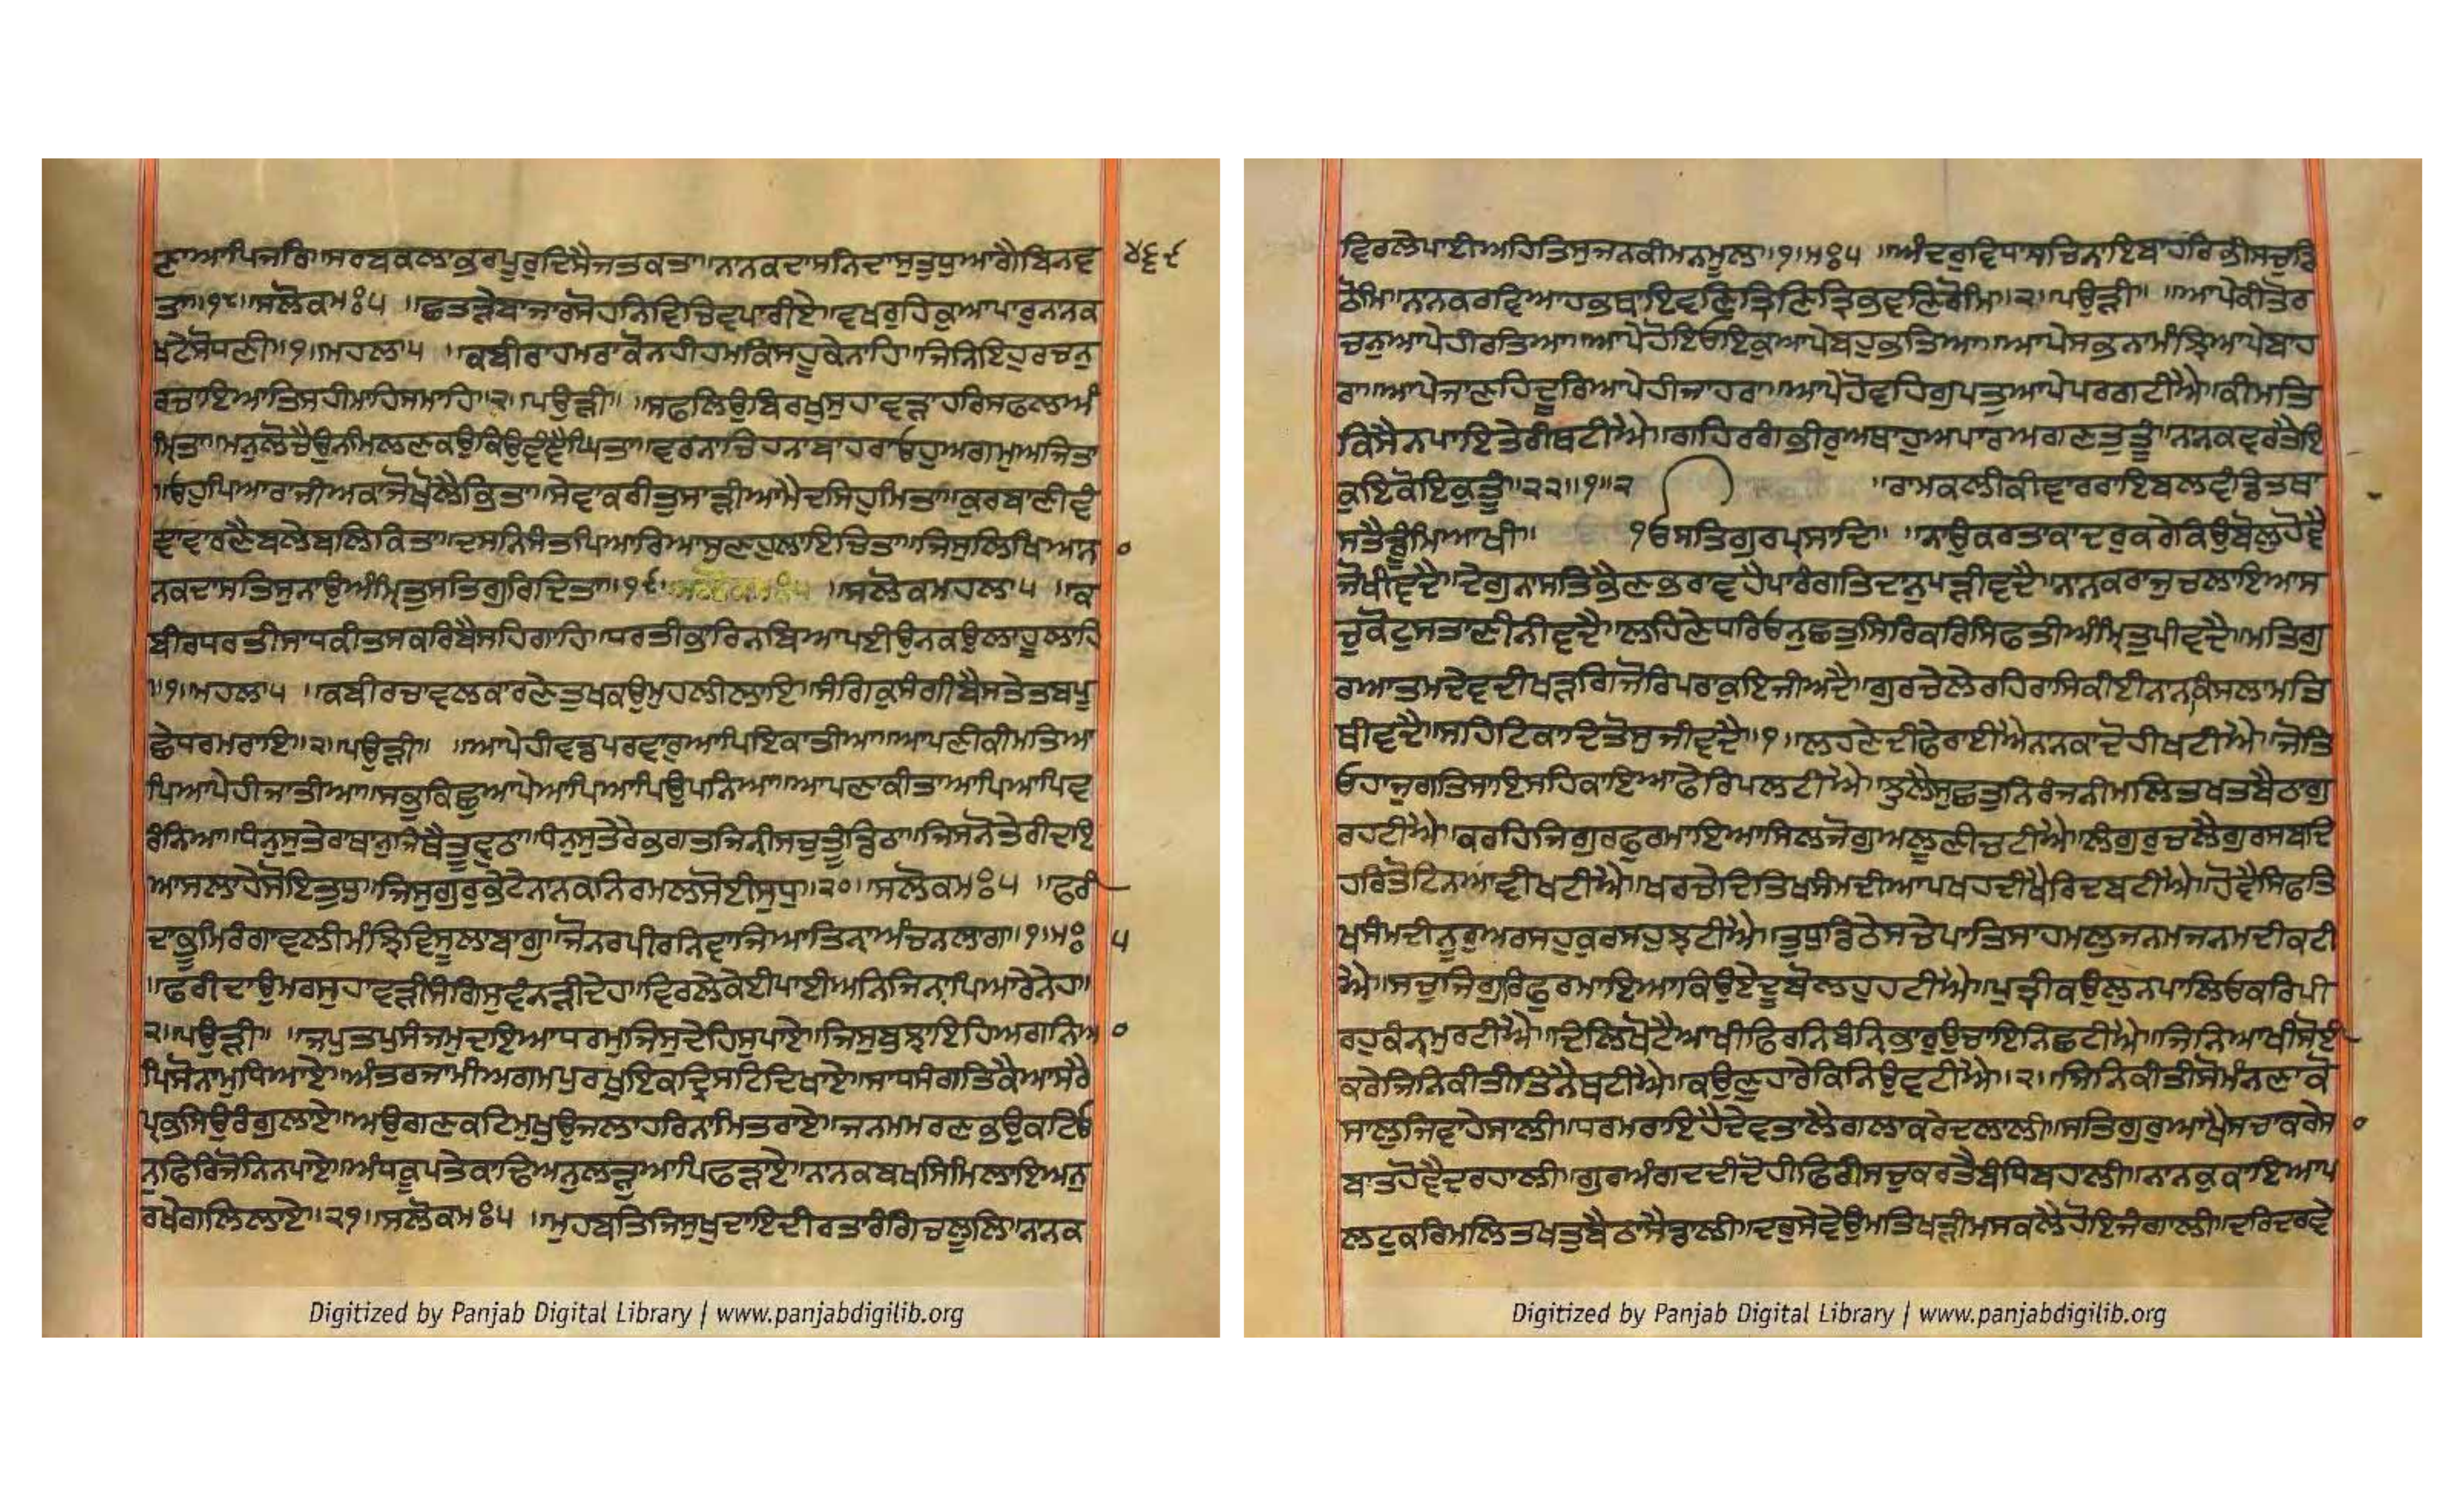 ਣਾਆਪਿਜਰਿ॥ਸਰਬਕਲਾਭਰਪੁਰੁਦਿਸੈਜਤਕਤਾ॥ਨਾਨਕਦਾਸਨਿਦਾਸੁਤੁਧੁਆਗੈਬਿਨਵ ੪੬੯
ਤਾ॥੧੮॥ਸਲੋਕਮਃ੫ ॥ਛਤੜੇਬਾਜਾਰਸੋਹਨਿਵਿਚਿਵਪਾਰੀਏ॥ਵਖਰੁਹਿਕੁਆਪਾਰੁਨਾਨਕ
ਖਟੇਸੋਧਣੀ॥੧॥ਮਹਲਾ੫ ॥ਕਬੀਰਾਹਮਰਾਕੋਨਹੀਹਮਕਿਸਹੂਕੇਨਾਹਿ॥ਜਿਨਿਇਹੁਰਚਨੁ
ਰਚਾਇਆਤਿਸਹੀਮਾਹਿਸਮਾਹਿ॥੨॥ਪਉੜੀ॥ ॥ਸਫਲਿਉਬਿਰਖੁਸੁਹਾਵੜਾਹਰਿਸਫਲਾਅੰ
ਮ੍ਰਿਤਾ॥ਮਨੁਲੋਚੈਉਨ੍ਹਿਮਿਲਣਕਉਕਿਉਵੰਞੈਘਿਤਾ॥ਵਰਨਾਚਿਹਨਾਬਾਹਰਾਓਹੁਅਗਮੁਅਜਿਤਾ
॥ਓਹੁਪਿਆਰਾਜੀਅਕਾਜੋਖੋਲੈਭਿਤਾ॥ਸੇਵਾਕਰੀਤੁਸਾੜੀਆਮੈਦਸਿਹੁਮਿਤਾ॥ਕੁਰਬਾਣੀਵੰ
ਞਾਵਾਰਣੈਬਲੇਬਲਿਕਿਤਾ॥ਦਸਨਿਸੰਤਪਿਆਰਿਆਸੁਣਹੁਲਾਇਚਿਤਾ॥ਜਿਸੁਲਿਖਿਆਨਾ ੦
ਨਕਦਾਸਤਿਸੁਨਾਉਅੰਮ੍ਰਿਤੁਸਤਿਗੁਰਿਦਿਤਾ॥੧੯॥ ॥ਸਲੋਕਮਹਲਾ੫ ॥ਕ
ਬੀਰਧਰਤੀਸਾਧਕੀਤਸਕਰਿਬੈਸਹਿਗਾਹਿ॥ਧਰਤੀਭਾਰਿਨਬਿਆਪਈਉਨਕਉਲਾਹੂਲਾਹਿ
॥੧॥ਮਹਲਾ੫ ॥ਕਬੀਰਚਾਵਲਕਾਰਣੇਤੁਖਕਉਮੁਹਲੀਲਾਇ॥ਸੰਗਿਕੁਸੰਗੀਬੈਸਤੇਤਬਪੂ
ਛੇਧਰਮਰਾਇ॥੨॥ਪਉੜੀ॥ ॥ਆਪੇਹੀਵਡਪਰਵਾਰੁਆਪਿਇਕਾਤੀਆ॥ਆਪਣੀਕੀਮਤਿਆ
ਪਿਆਪੇਹੀਜਾਤੀਆ॥ਸਭੁਕਿਛੁਆਪੇਆਪਿਆਪਿਉਪੰਨਿਆ॥ਆਪਣਾਕੀਤਾਆਪਿਆਪਿਵ
ਰੰਨਿਆ॥ਧੰਨੁਸੁਤੇਰਾਥਾਨੁਜਿਥੈਤੂਵੁਠਾ॥ਧੰਨੁਸੁਤੇਰੇਭਗਤਜਿਨੀਸਚੁਤੂੰਡਿਠਾ॥ਜਿਸਨੋਤੇਰੀਦਇ
ਆਸਲਾਹੇਸੋਇਤੁਧੁ॥ਜਿਸੁਗੁਰਭੇਟੇਨਾਨਕਨਿਰਮਲਸੋਈਸੁਧੁ॥੨੦॥ਸਲੋਕਮਃ੫ ॥ਫਰੀ
ਦਾਭੂਮਿਰੰਗਾਵਲੀਮੰਝਿਵਿਸੂਲਾਬਾਗੁ॥ਜੋਨਰਪੀਰਨਿਵਾਜਿਆਤਿਨ੍ਹਾਅੰਚਨਲਾਗ॥੧॥ਮਃ ੫
॥ਫਰੀਦਾਉਮਰਸੁਹਾਵੜੀਸੰਗਿਸੁਵੰਨੜੀਦੇਹ॥ਵਿਰਲੇਕੇਈਪਾਈਅਨਿਜਿਨ੍ਹਾਪਿਆਰੇਨੇਹ॥
੨॥ਪਉੜੀ॥ ॥ਜਪੁਤਪੁਸੰਜਮੁਦਇਆਧਰਮੁਜਿਸੁਦੇਹਿਸੁਪਾਏ॥ਜਿਸੁਬੁਝਾਇਹਿਅਗਨਿਆ ੦
ਪਿਸੋਨਾਮੁਧਿਆਏ॥ਅੰਤਰਜਾਮੀਅਗਮਪੁਰਖੁਇਕਦ੍ਰਿਸਟਿਦਿਖਾਏ॥ਸਾਧਸੰਗਤਿਕੈਆਸਰੈ
ਪ੍ਰਭਸਿਉਰੰਗੁਲਾਏ॥ਅਉਗਣਕਟਿਮੁਖੁਉਜਲਾਹਰਿਨਾਮਿਤਰਾਏ॥ਜਨਮਮਰਣਭਉਕਟਿਓ
ਨੁਫਿਰਿਜੋਨਿਨਪਾਏ॥ਅੰਧਕੂਪਤੇਕਾਢਿਅਨੁਲੜੁਆਪਿਫੜਾਏ॥ਨਾਨਕਬਖਸਿਮਿਲਾਇਅਨੁ
ਰਖੇਗਲਿਲਾਏ॥੨੧॥ਸਲੋਕਮਃ੫ ॥ਮੁਹਬਤਿਜਿਸੁਖੁਦਾਇਦੀਰਤਾਰੰਗਿਚਲੂਲਿ॥ਨਾਨਕ
Digitized by Panjab Digital Library | www.panjabdigilib.org
ਵਿਰਲੇਪਾਈਅਹਿਤਿਸੁਜਨਕੀਮਨਮੂਲ॥੧॥ਮਃ੫ ॥ਅੰਦਰੁਵਿਧਾਸਚਿਨਾਇਬਾਹਰਿਭੀਸਚੁਡਿ
ਠੋਮਿ॥ਨਾਨਕਰਵਿਆਹਭਥਾਇਵਣਿਤ੍ਰਿਣਿਤ੍ਰਿਭਵਣਿਰੋਮਿ॥੨॥ਪਉੜੀ॥ ॥ਆਪੇਕੀਤੋਰ
ਚਨੁਆਪੇਹੀਰਤਿਆ॥ਆਪੇਹੋਇਓਇਕੁਆਪੇਬਹੁਭਤਿਆ॥ਆਪੇਸਭਨਾਮੰਝਿਆਪੇਬਾਹ
ਰਾ॥ਆਪੇਜਾਣਹਿਦੂਰਿਆਪੇਹੀਜਾਹਰਾ॥ਆਪੇਹੋਵਹਿਗੁਪਤੁਆਪੇਪਰਗਟੀਐ॥ਕੀਮਤਿ
ਕਿਸੈਨਪਾਇਤੇਰੀਥਟੀਐ॥ਗਹਿਰਗੰਭੀਰੁਅਥਾਹੁਅਪਾਰਅਗਣਤਤੂੰ॥ਨਾਨਕਵਰਤੈਇ
ਕੁਇਕੋਇਕੁਤੂੰ॥੨੨॥੧॥੨ ॥ਰਾਮਕਲੀਕੀਵਾਰਰਾਇਬਲਵੰਡਿਤਥਾ
ਸਤੈਡੂੰਮਿਆਖੀ॥ ੧ਓਸਤਿਗੁਰਪ੍ਰਸਾਦਿ॥ ॥ਨਾਉਕਰਤਾਕਾਦਰੁਕਰੇਕਿਉਬੋਲੁਹੋਵੈ
ਜੋਖੀਵਦੈ॥ਦੇਗੁਨਾਸਤਿਭੈਣਭਰਾਵਹੈਪਾਰੰਗਤਿਦਾਨੁਪੜੀਵਦੈ॥ਨਾਨਕਰਾਜੁਚਲਾਇਆਸ
ਚੁਕੋਟੁਸਤਾਣੀਨੀਵਦੈ॥ਲਹਿਣੇਧਰਿਓਨੁਛਤੁਸਿਰਿਕਰਿਸਿਫਤੀਅੰਮ੍ਰਿਤੁਪੀਵਦੈ॥ਮਤਿਗੁ
ਰਆਤਮਦੇਵਦੀਖੜਗਿਜੋਰਿਪਰਾਕੁਇਜੀਅਦੈ॥ਗੁਰਚੇਲੇਰਹਿਰਾਸਿਕੀਈਨਾਨਕਿਸਲਾਮਤਿ
ਥੀਵਦੈ॥ਸਹਿਟਿਕਾਦਿਤੋਸੁਜੀਵਦੈ॥੧॥ਲਹਣੇਦੀਫੇਰਾਈਐਨਾਨਕਾਦੋਹੀਖਟੀਐ॥ਜੋਤਿ
ਓਹਾਜੁਗਤਿਸਾਇਸਹਿਕਾਇਆਫੇਰਿਪਲਟੀਐ॥ਝੁਲੈਸੁਛਤੁਨਿਰੰਜਨੀਮਲਿਤਖਤਬੈਠਾਗੁ
ਰਹਟੀਐ॥ਕਰਹਿਜਿਗੁਰਫੁਰਮਾਇਆਸਿਲਜੋਗੁਅਲੂਣੀਚਟੀਐ॥ਲੰਗਰੁਚਲੈਗੁਰਸਬਦਿ
ਹਰਿਤੋਟਿਨਆਵੀਖਟੀਐ॥ਖਰਚੇਦਿਤਿਖਸੰਮਦੀਆਪਖਹਦੀਖੈਰਿਦਬਟੀਐ॥ਹੋਵੈਸਿਫਤਿ
ਖਸੰਮਦੀਨੂਰੁਅਰਸਹੁਕੁਰਸਹੁਝਟੀਐ॥ਤੁਧੁਡਿਠੇਸਚੇਪਾਤਿਸਾਹਮਲੁਜਨਮਜਨਮਦੀਕਟੀ
ਐ॥ਸਚੁਜਿਗੁਰਿਫੁਰਮਾਇਆਕਿਉਏਦੂਬੋਲਹੁਹਟੀਐ॥ਪੁਤ੍ਰੀਕਉਲੁਨਪਾਲਿਓਕਰਿਪੀ
ਰਹੁਕੰਨ੍ਹਮੁਰਟੀਐ॥ਦਿਲਿਖੋਟੈਆਖੀਫਿਰਨਿਬੰਨਿ੍ਭਾਰੁਉਚਾਇਨਿਛਟੀਐ॥ਜਿਨਿਆਖੀਸੋਈ
ਕਰੇਜਿਨਿਕੀਤੀਤਿਨੈਥਟੀਐ॥ਕਉਣੁਹਾਰੇਕਿਨਿਉਵਟੀਐ॥੨॥ਜਿਨਿਕੀਤੀਸੋਮੰਨਣਾਕੋ
ਸਾਲੁਜਿਵਾਹੇਸਾਲੀ॥ਧਰਮਰਾਇਹੈਦੇਵਤਾਲੈਗਲਾਕਰੇਦਲਾਲੀ॥ਸਤਿਗੁਰੁਆਖੈਸਚਾਕਰੇਸਾ ੦
ਬਾਤਹੋਵੈਦਰਹਾਲੀ॥ਗੁਰਅੰਗਦਦੀਦੋਹੀਫਿਰੀਸਚੁਕਰਤੈਬੰਧਿਬਹਾਲੀ॥ਨਾਨਕੁਕਾਇਆਪ
ਲਟੁਕਰਿਮਲਿਤਖਤੁਬੈਠਾਸੈਡਾਲੀ॥ਦਰੁਸੇਵੇਉਮਤਿਖੜੀਮਸਕਲੈਹੋਇਜੰਗਾਲੀ॥ਦਰਿਦਰਵੇ
Digitized by Panjab Digital Library | www.panjabdigilib.org